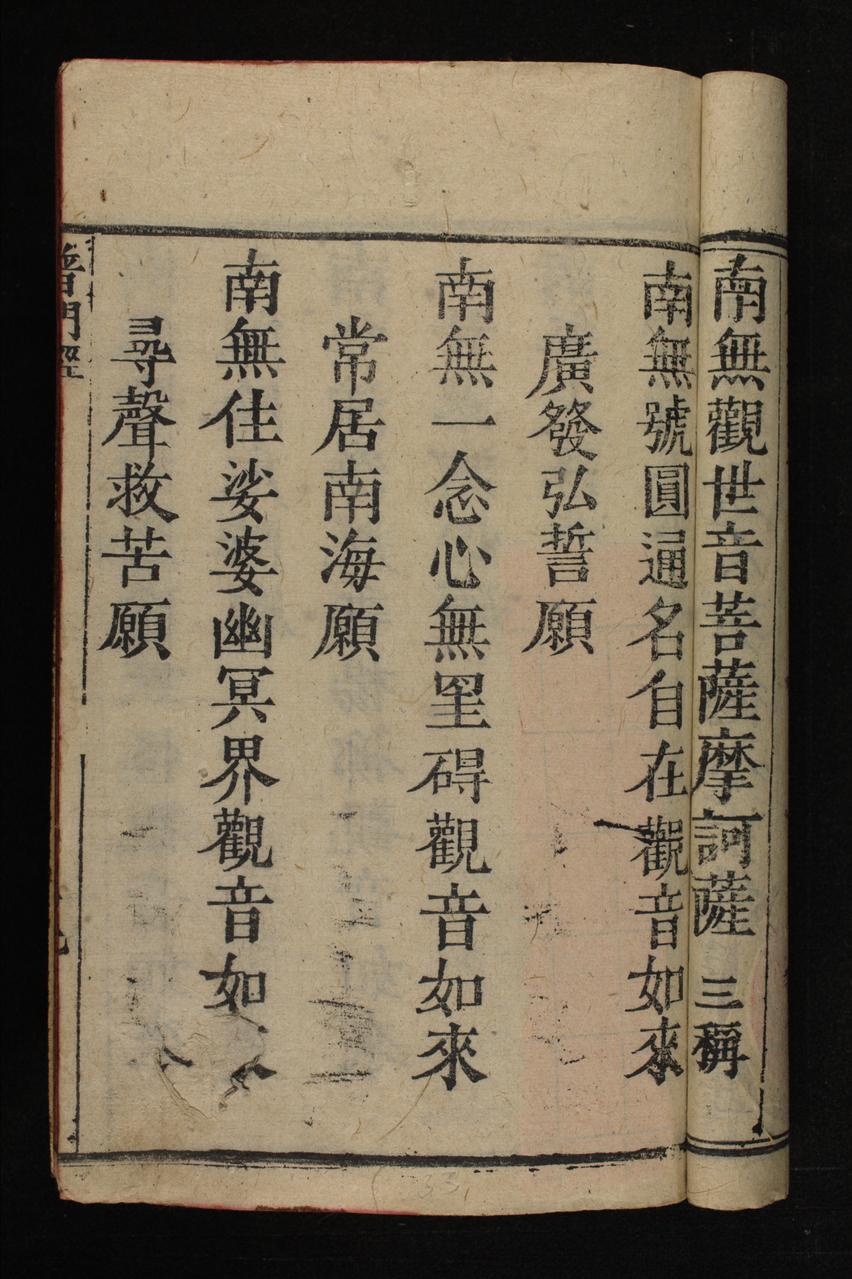 南無觀世音菩薩摩訶薩 三稱
南無號圓通名自在觀音如來
廣發弘誓願
南無一念心無罣碍觀音如來
常居南海願
南無住娑婆幽冥界觀音如
尋聲救苦願
普門經